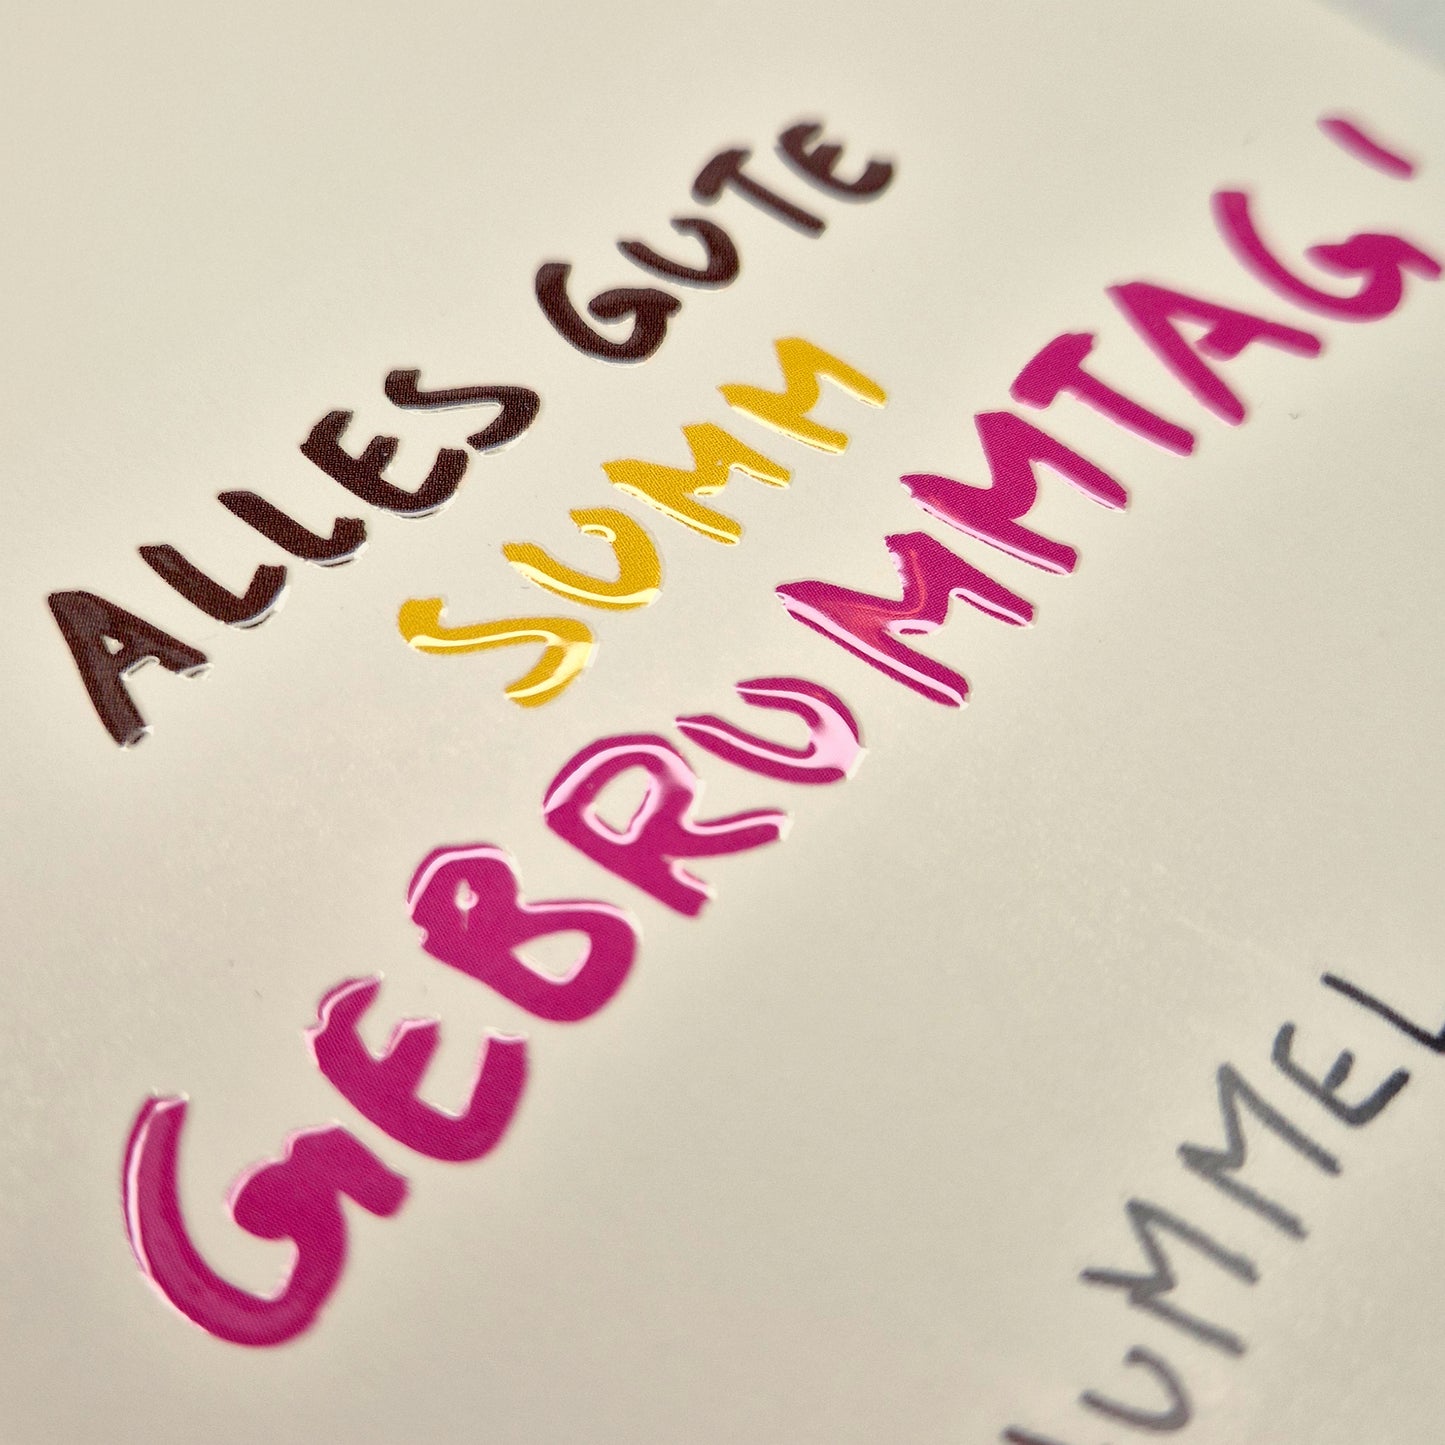 ALLES GUTE
SUMM
GEBRUMMTAG!